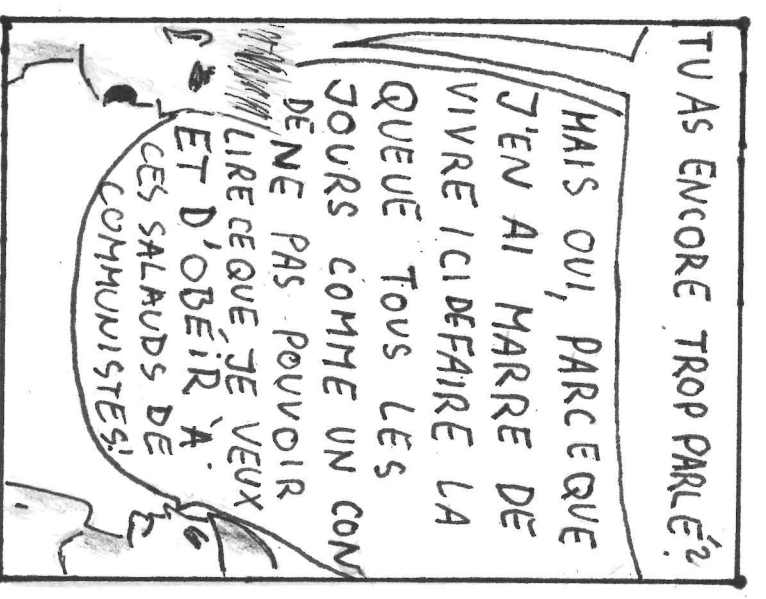 TU AS ENCORE TROP PARLÉ?
MAIS OUI, PARCEQUE
J'EN AI MARRE DE
VIVRE ICI DE FAIRE LA
QUEUE TOUS LES
JOURS COMME UN CON
DE NE PAS POUVOIR
LIRE CE QUE JE VEUX
ET D'OBÉIR À
CES SALAUDS DE
COMMUNISTES!